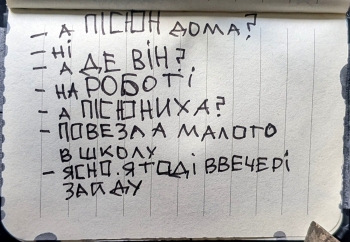 - А ПІСЮН ДОМА?
- НІ
- А ДЕ ВІН?
- НА РОБОТІ
- А ПІСЮНИХА?
- ПОВЕЗЛА МАЛОГО
В ШКОЛУ
- ЯСНО. Я ТОДІ ВВЕЧЕРІ
ЗАЙДУ